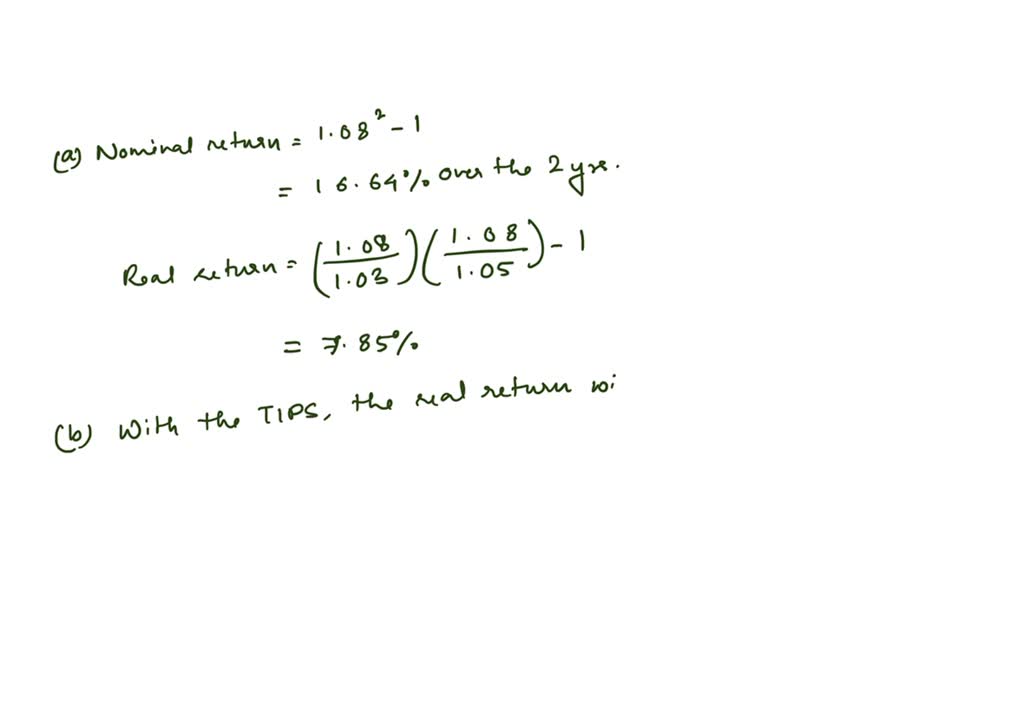 (a) Nominal return = 1.08² - 1
= 16.64% over the 2 yrs.
Real return = (1.08/1.03)(1.08/1.05) - 1
= 7.85%
(b) With the TIPS, the real return wi